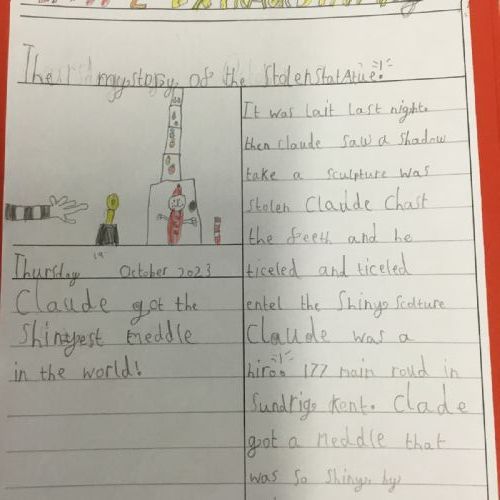 The mystory of the Stolen Statue!
Thursday October 2023
Claude got the
Shinyest meddle
in the world!
It was lait last night.
then claude saw a shadow
take a sculpture was
stolen Claude Chast
the feeth and he
ticeled and ticeled
entel the Shiny Scolture
Claude was a
hiro! 177 main roud in
Sundrig, Kent. Clade
got a meddle that
was so shiny, by